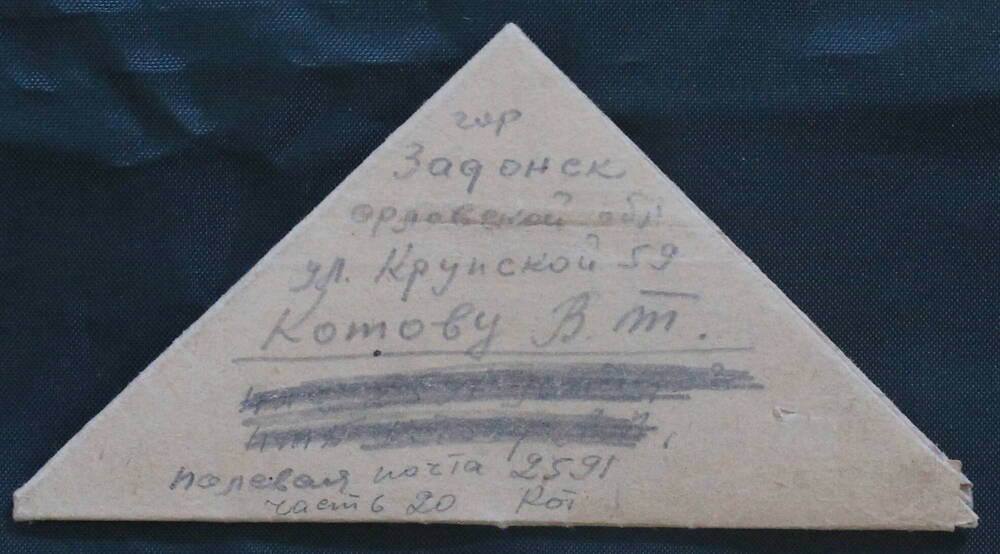 гор
Задонск
орловской обл
ул. Крупской 59
Котову В. Т.
полевая почта 2591
часть 20 Кот